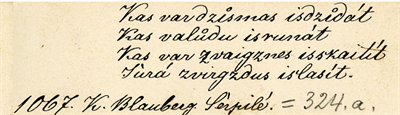 Kas var dzīsmas isdzīdát
Kas valůdu isrunát
Kas var zvaigznes isskaitít
Jůrá zvirgzdus islasít.
1067. K. Blauberg Sērpilé. = 324.a.